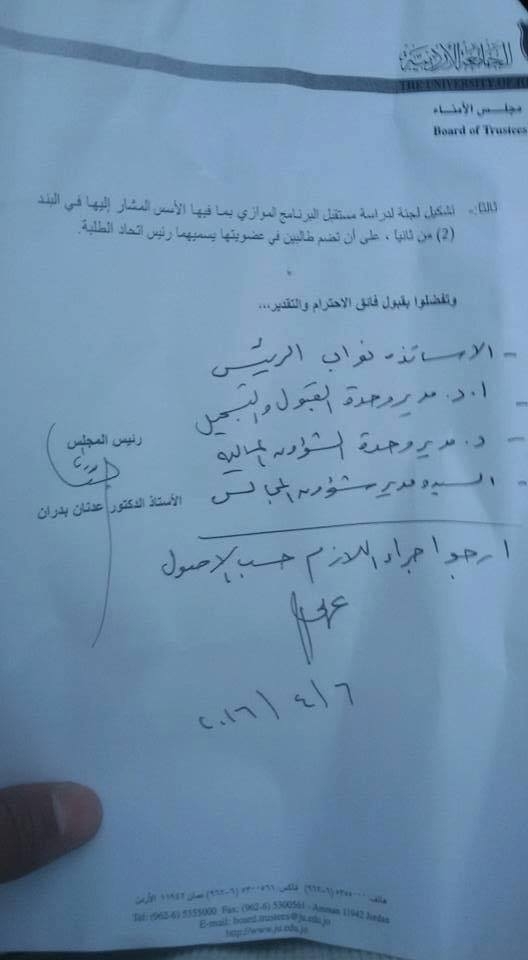 الجامعة الأردنية
THE UNIVERSITY OF
مجلس الأمناء
Board of Trustees
ثالثا:- تشكيل لجنة لدراسة مستقبل البرنامج الموازي بما فيها الأسس المشار إليها في البند
(2) من ثانيا ، على أن تضم طالبين في عضويتها يسميهما رئيس اتحاد الطلبة.
وتفضلوا بقبول فائق الاحترام والتقدير...
- الاساتذه نواب الرئيس
- أ.د. مدير وحدة القبول والتسجيل
- د. مدير وحدة الشؤون المالية
- السيد مدير شؤون المجالس
رئيس المجلس
الأستاذ الدكتور عدنان بدران
ارجو اجراء اللازم حسب الاصول
٦/٤/٢٠١٦
هاتف: ٥٣٥٥٠٠٠ (٦-٩٦٢) فاكس: ٥٣٠٠٥٦١ (٦-٩٦٢) عمان ١١٩٤٢ الأردن
Tel: (962-6) 5355000 Fax: (962-6) 5300561 - Amman 11942 Jordan
E-mail: board.trustees@ju.edu.jo
http://www.ju.edu.jo